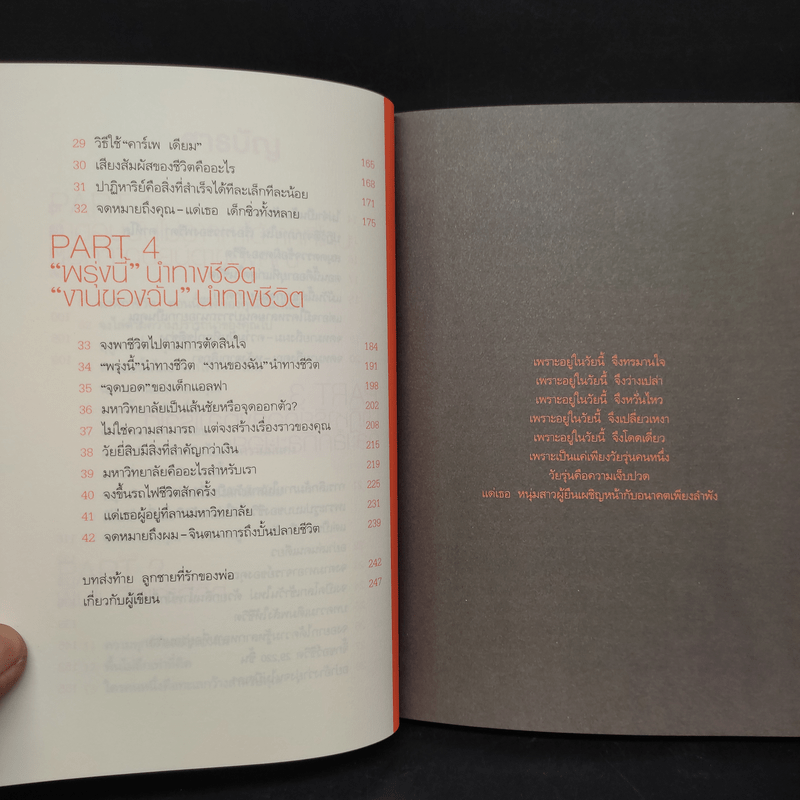 29 วิธีใช้ “คาร์เพ เดียม” 165
30 เสียงสัมผัสของชีวิตคืออะไร 168
31 ปาฏิหาริย์คือสิ่งที่สำเร็จได้ทีละเล็กทีละน้อย 171
32 จดหมายถึงคุณ–แด่เธอ เด็กซิ่วทั้งหลาย 175
PART 4
“พรุ่งนี้” นำทางชีวิต
“งานของฉัน” นำทางชีวิต
33 จงพาชีวิตไปตามการตัดสินใจ 184
34 “พรุ่งนี้”นำทางชีวิต “งานของฉัน”นำทางชีวิต 191
35 “จุดบอด”ของเด็กแอลฟา 198
36 มหาวิทยาลัยเป็นเส้นชัยหรือจุดออกตัว? 202
37 ไม่ใช่ความสามารถ แต่จงสร้างเรื่องราวของคุณ 208
38 วัยยี่สิบมีสิ่งที่สำคัญกว่าเงิน 215
39 มหาวิทยาลัยคืออะไรสำหรับเรา 219
40 จงขึ้นรถไฟชีวิตสักครั้ง 225
41 แด่เธอผู้อยู่ที่ลานมหาวิทยาลัย 231
42 จดหมายถึงผม–จินตนาการถึงบั้นปลายชีวิต 239
บทส่งท้าย ลูกชายที่รักของพ่อ 242
เกี่ยวกับผู้เขียน 247
เพราะอยู่ในวัยนี้ จึงทรมานใจ
เพราะอยู่ในวัยนี้ จึงว่างเปล่า
เพราะอยู่ในวัยนี้ จึงหวั่นไหว
เพราะอยู่ในวัยนี้ จึงเปลี่ยวเหงา
เพราะอยู่ในวัยนี้ จึงโดดเดี่ยว
เพราะเป็นแค่เพียงวัยรุ่นคนหนึ่ง
วัยรุ่นคือความเจ็บปวด
แด่เธอ หนุ่มสาวผู้ยืนเผชิญหน้ากับอนาคตเพียงลำพัง